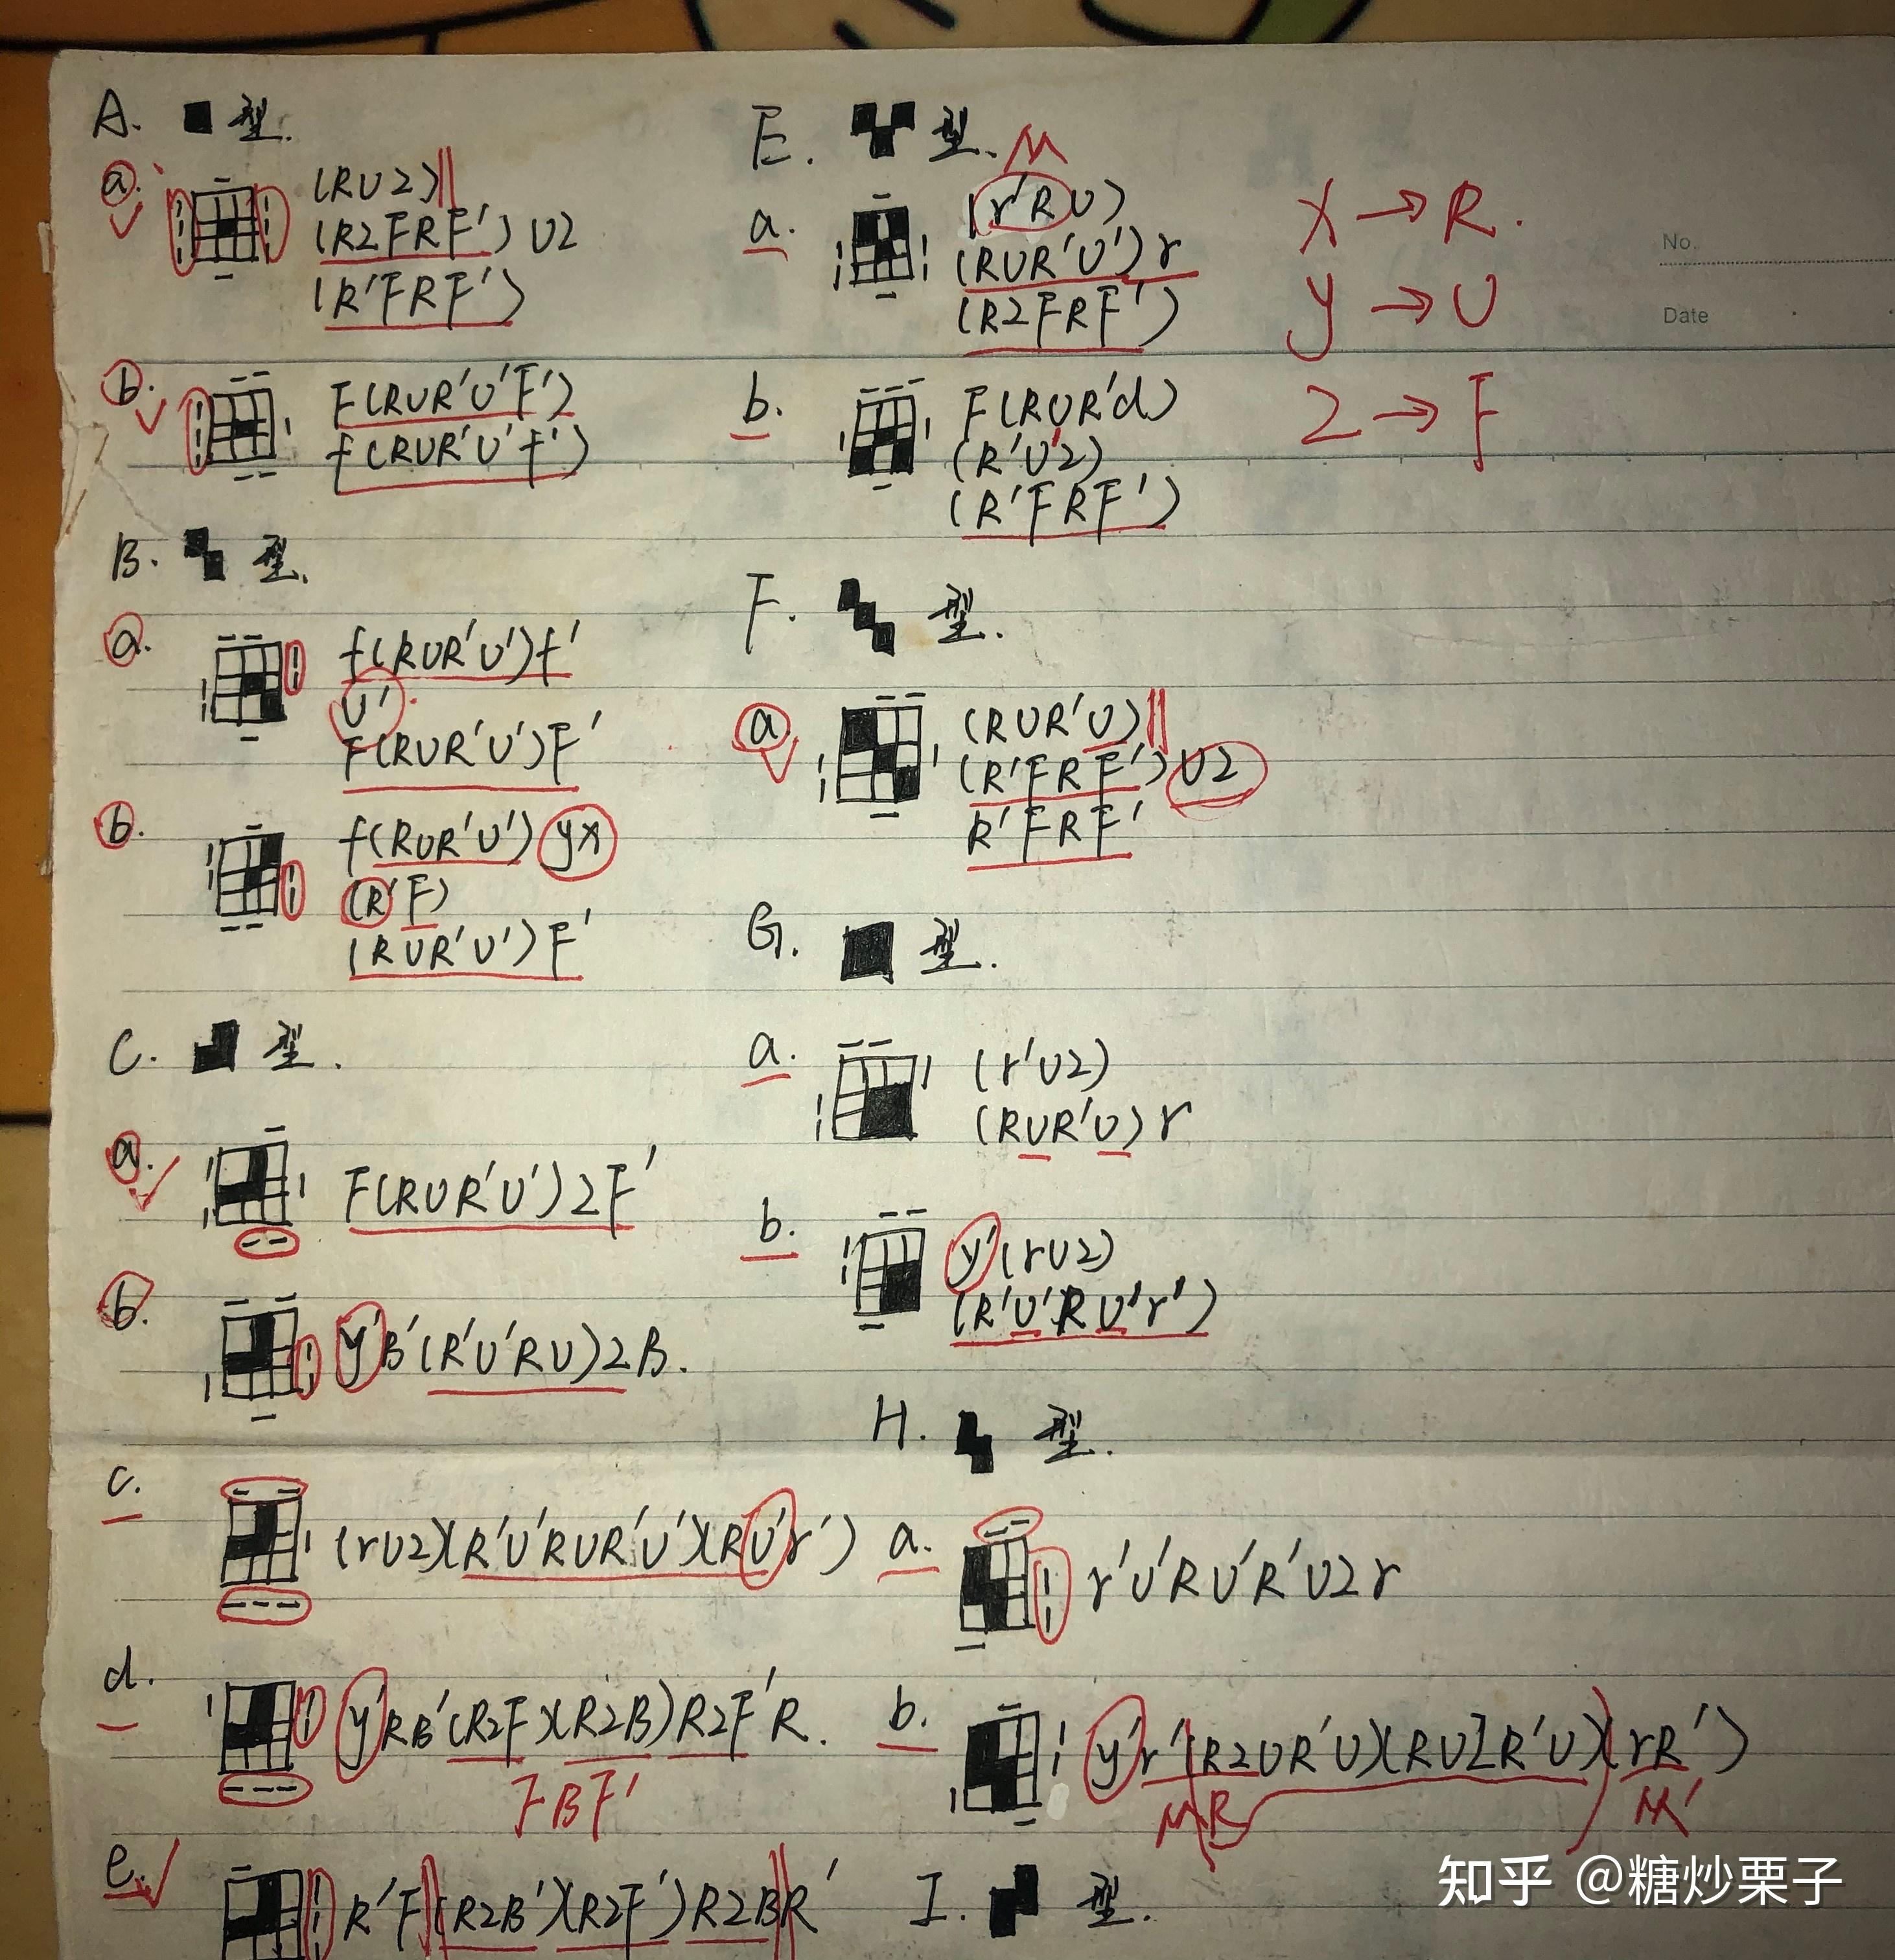 A. 型.
a. (RU2)
(R2FRF')U2
(R'FRF')
b. F(RUR'U'F')
f(RUR'U'f')
B. 型.
a. f(RUR'U')f'
U'
F(RUR'U')F'
b. f(RUR'U')yx
(R'F)
(RUR'U')F'
C. 型.
a. F(RUR'U')2F'
b. y'B'(R'U'RU)2B.
c. (rU2)(R'U'RUR'U')(RU'r')
d. y'RB'(R2F)(R2B)R2F'R.
FBF'
e. R'F(R2B')(R2F')R2BR'
E. 型.
M
a. (r'RU)
(RUR'U')r
(R2FRF')
b. F(RUR'd)
(R'U'2)
(R'FRF')
F. 型.
a (RUR'U)
(R'FRF')U2
R'FRF'
G. 型.
a. (r'U2)
(RUR'U)r
b. y'(rU2)
(R'U'RU'r')
H. 型.
a. r'U'RU'R'U2r
b. y'r'(R2UR'U)(RU2R'U)(rR')
MR M'
I. 型.
X→R.
y→U
Z→F
No.
Date
知乎 @糖炒栗子